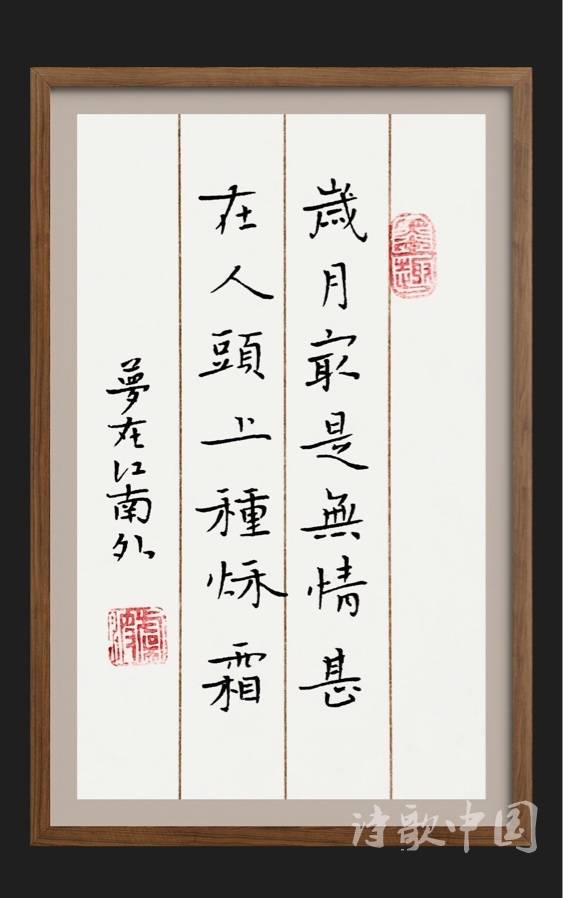 歲月最是無情甚
在人頭上種秌霜
夢在江南外
墨趣
诗歌中国